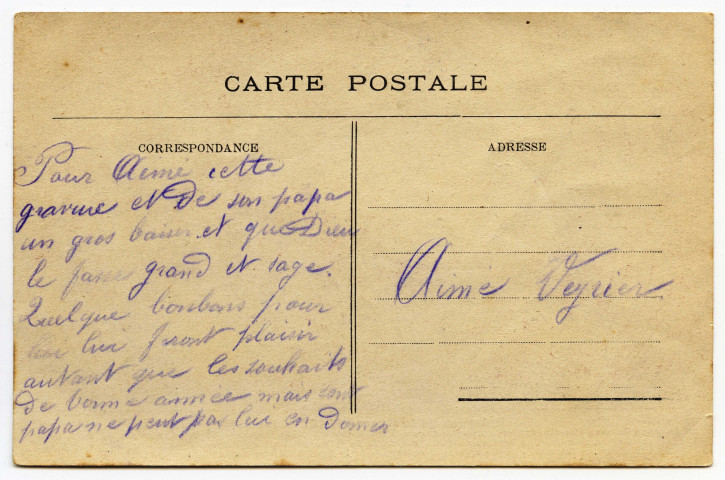 CARTE POSTALE
CORRESPONDANCE
Pour Aimé cette
gravure et de son papa
un gros baiser et que Dieu
le fasse grand et sage.
Quelque bonbons pour
lui front plaisir
autant que les souhaits
de bonne année mais son
papa ne peut pas lui en Donner
ADRESSE
Aimé Veyrier